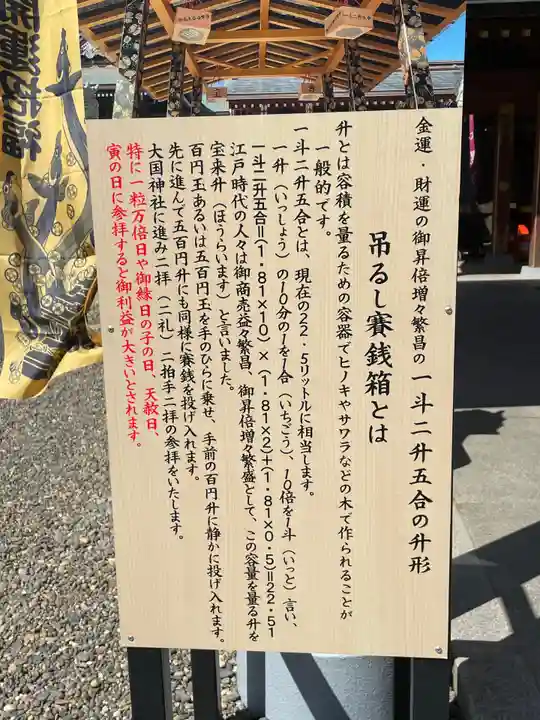 金運・財運の御昇倍増々繁昌の一斗二升五合の升形
吊るし賽銭箱とは
升とは容積を量るための容器でヒノキやサワラなどの木で作られることが
一般的です。
一斗二升五合とは、現在の22・5リットルに相当します。
一升（いっしょう）の10分の1を1合（いちごう）、10倍を1斗（いっと）言い、
一斗二升五合＝(1・81×10)×(1・81×2)+(1・81×0・5)=22・51
江戸時代の人々は御商売益々繁昌、御昇倍増々繁盛として、この容量を量る升を
宝来升（ほうらいます）と言いました。
百円玉あるいは五百円玉を手のひらに乗せ、手前の百円升に静かに投げ入れます。
先に進んで五百円升にも同様に賽銭を投げ入れます。
大国神社に進み二拝（二礼）二拍手二拝の参拝をいたします。
特に一粒万倍日や御縁日の子の日、天赦日、
寅の日に参拝すると御利益が大きいとされます。
開運招福